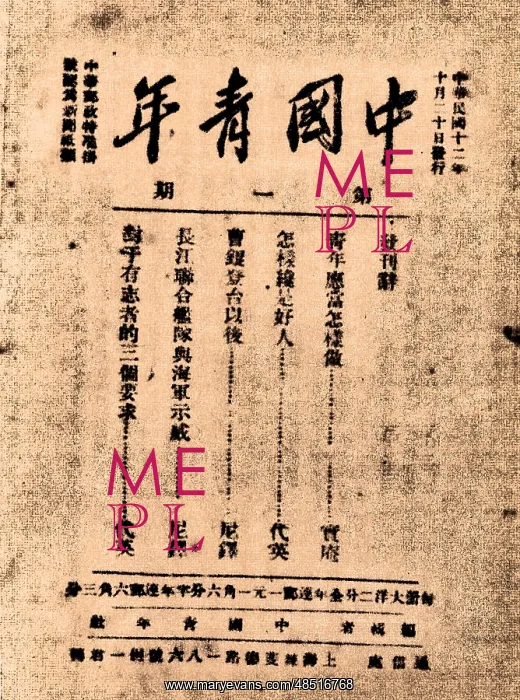 中華民國十二年
十月二十日發行
中國青年
中華郵政特准掛
號認爲新聞紙類
第一期
發刊辭
青年應當怎樣做 實庵
怎樣纔是好人 代英
曹錕登台以後 尼鐸
長江聯合艦隊與海軍示威 尼鐸
對于有志者的三個要求 代英
每册大洋二分全年連郵一元一角六分半年連郵六角三分
編輯者 中國青年社
通信處 上海
ME
PL
ME
PL
www.maryevans.com/48516768